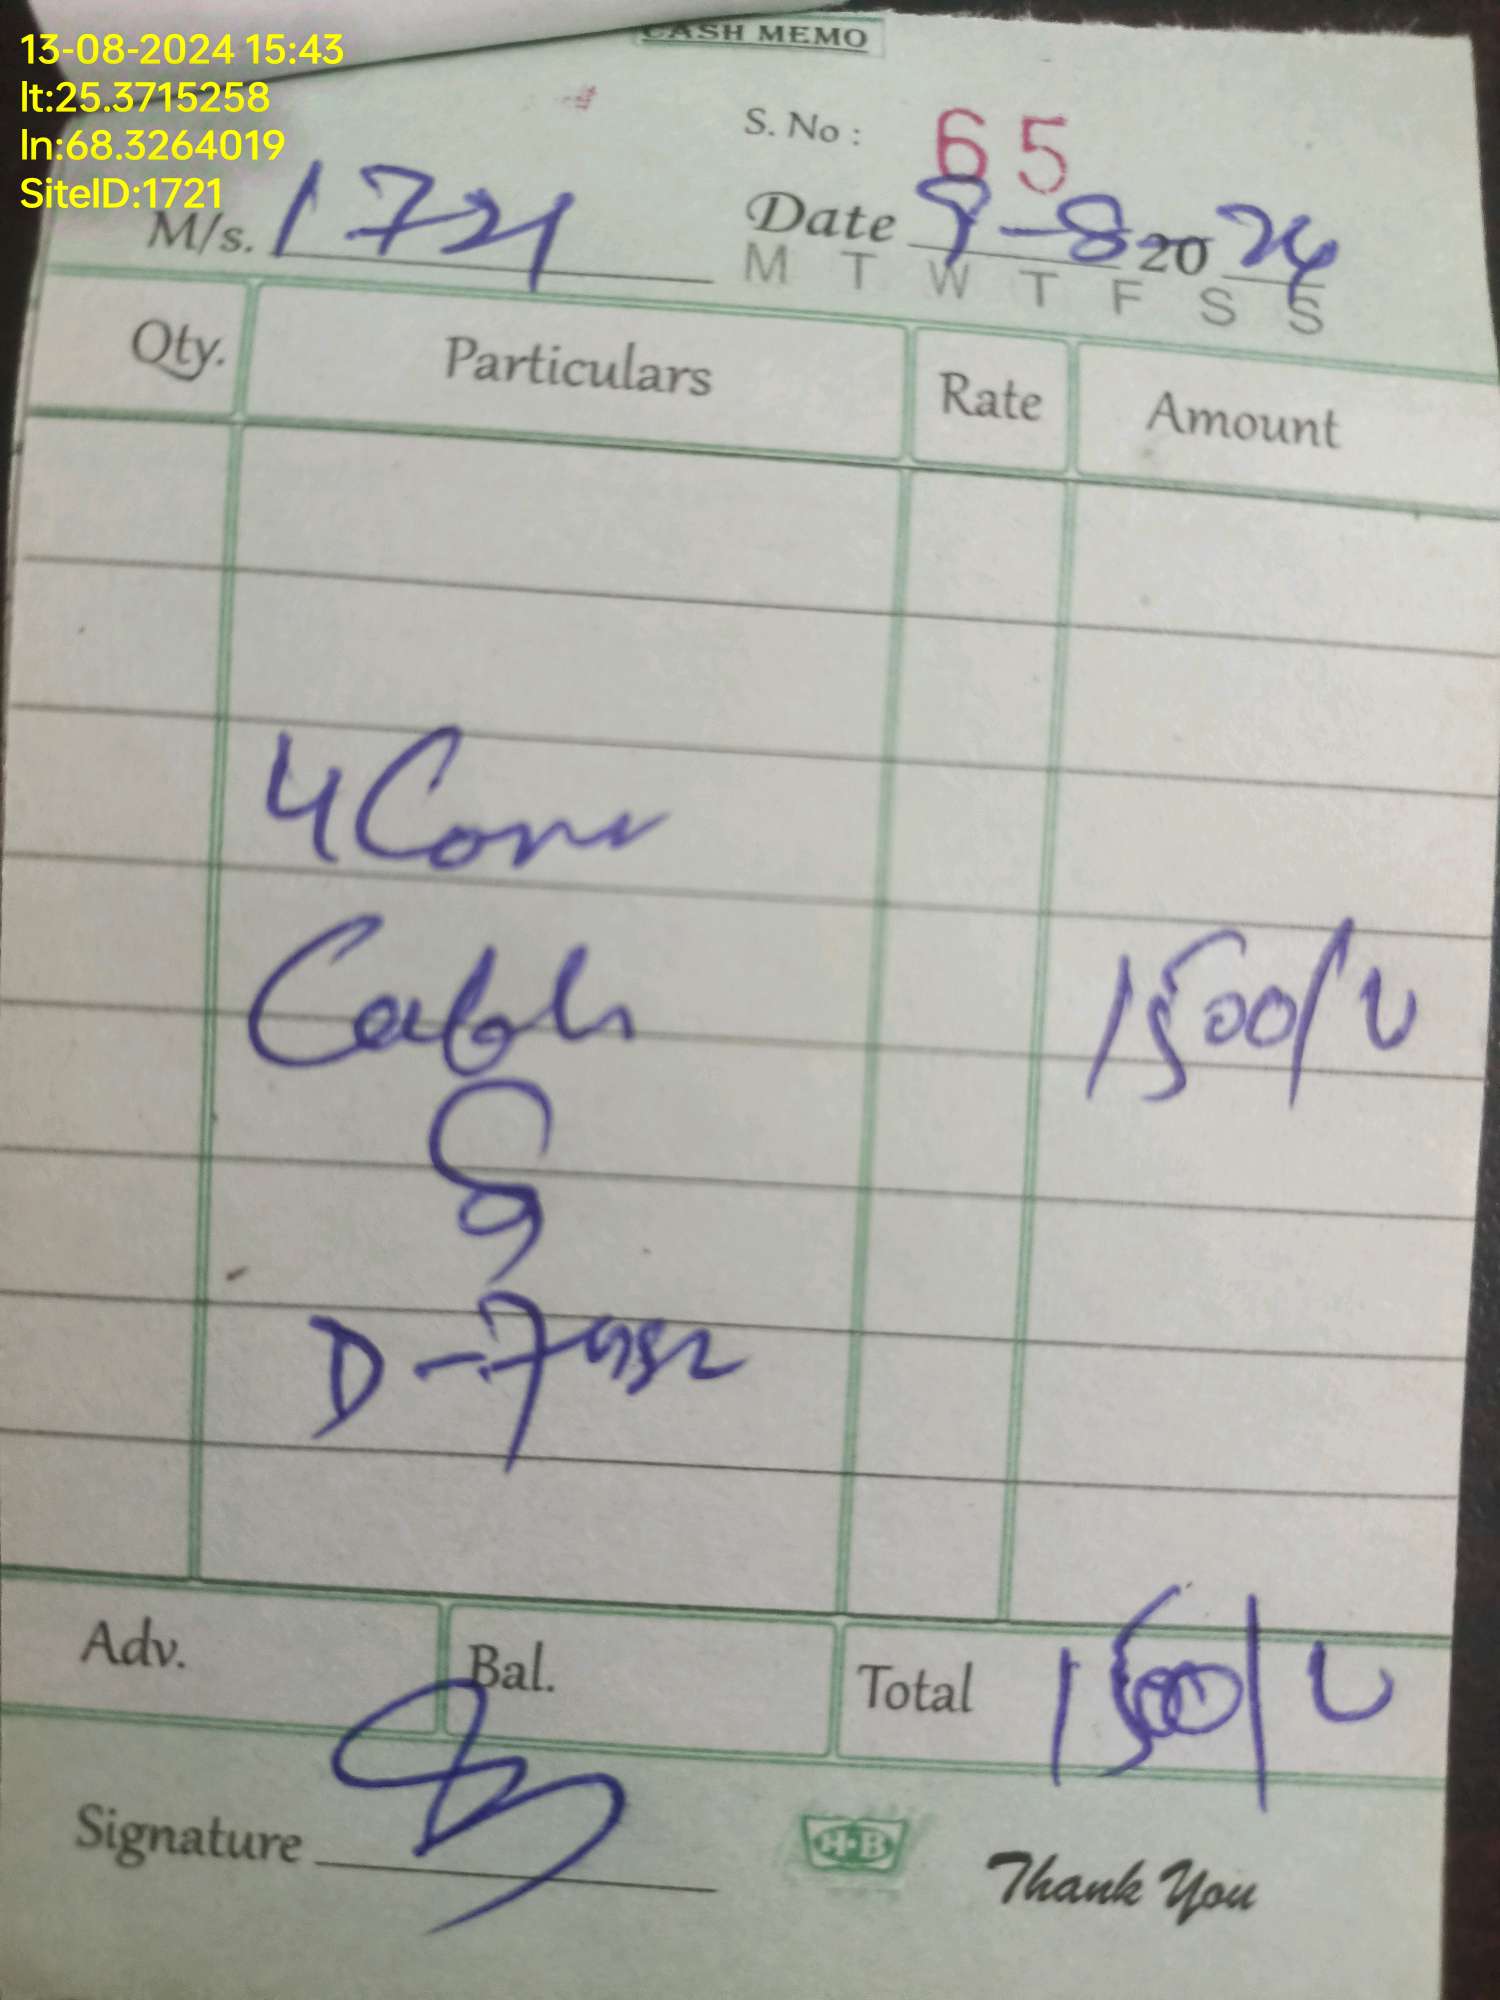 13-08-2024 15:43
lt:25.3715258
ln:68.3264019
SiteID:1721
CASH MEMO
S. No : 65
M/s. 1721 Date 9-8-2024
M T W T F S S
Qty. Particulars Rate Amount
4 Core
Cable 1500/
D-7
Adv. Bal. Total 1500/
Signature
H-B
Thank You